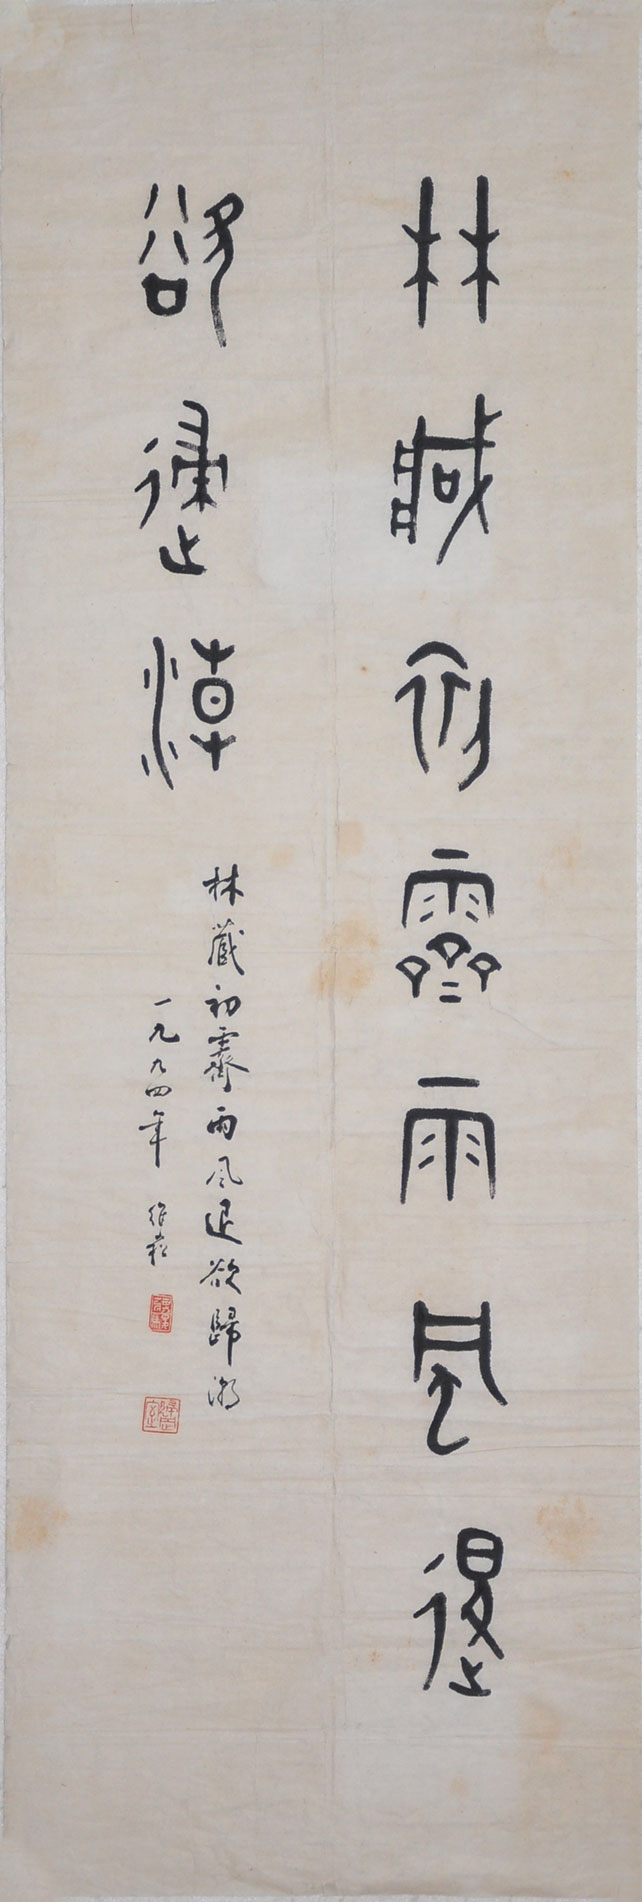 林藏初霽雨風退
欲歸潮
林藏初霽雨風退欲歸潮
一九九四年